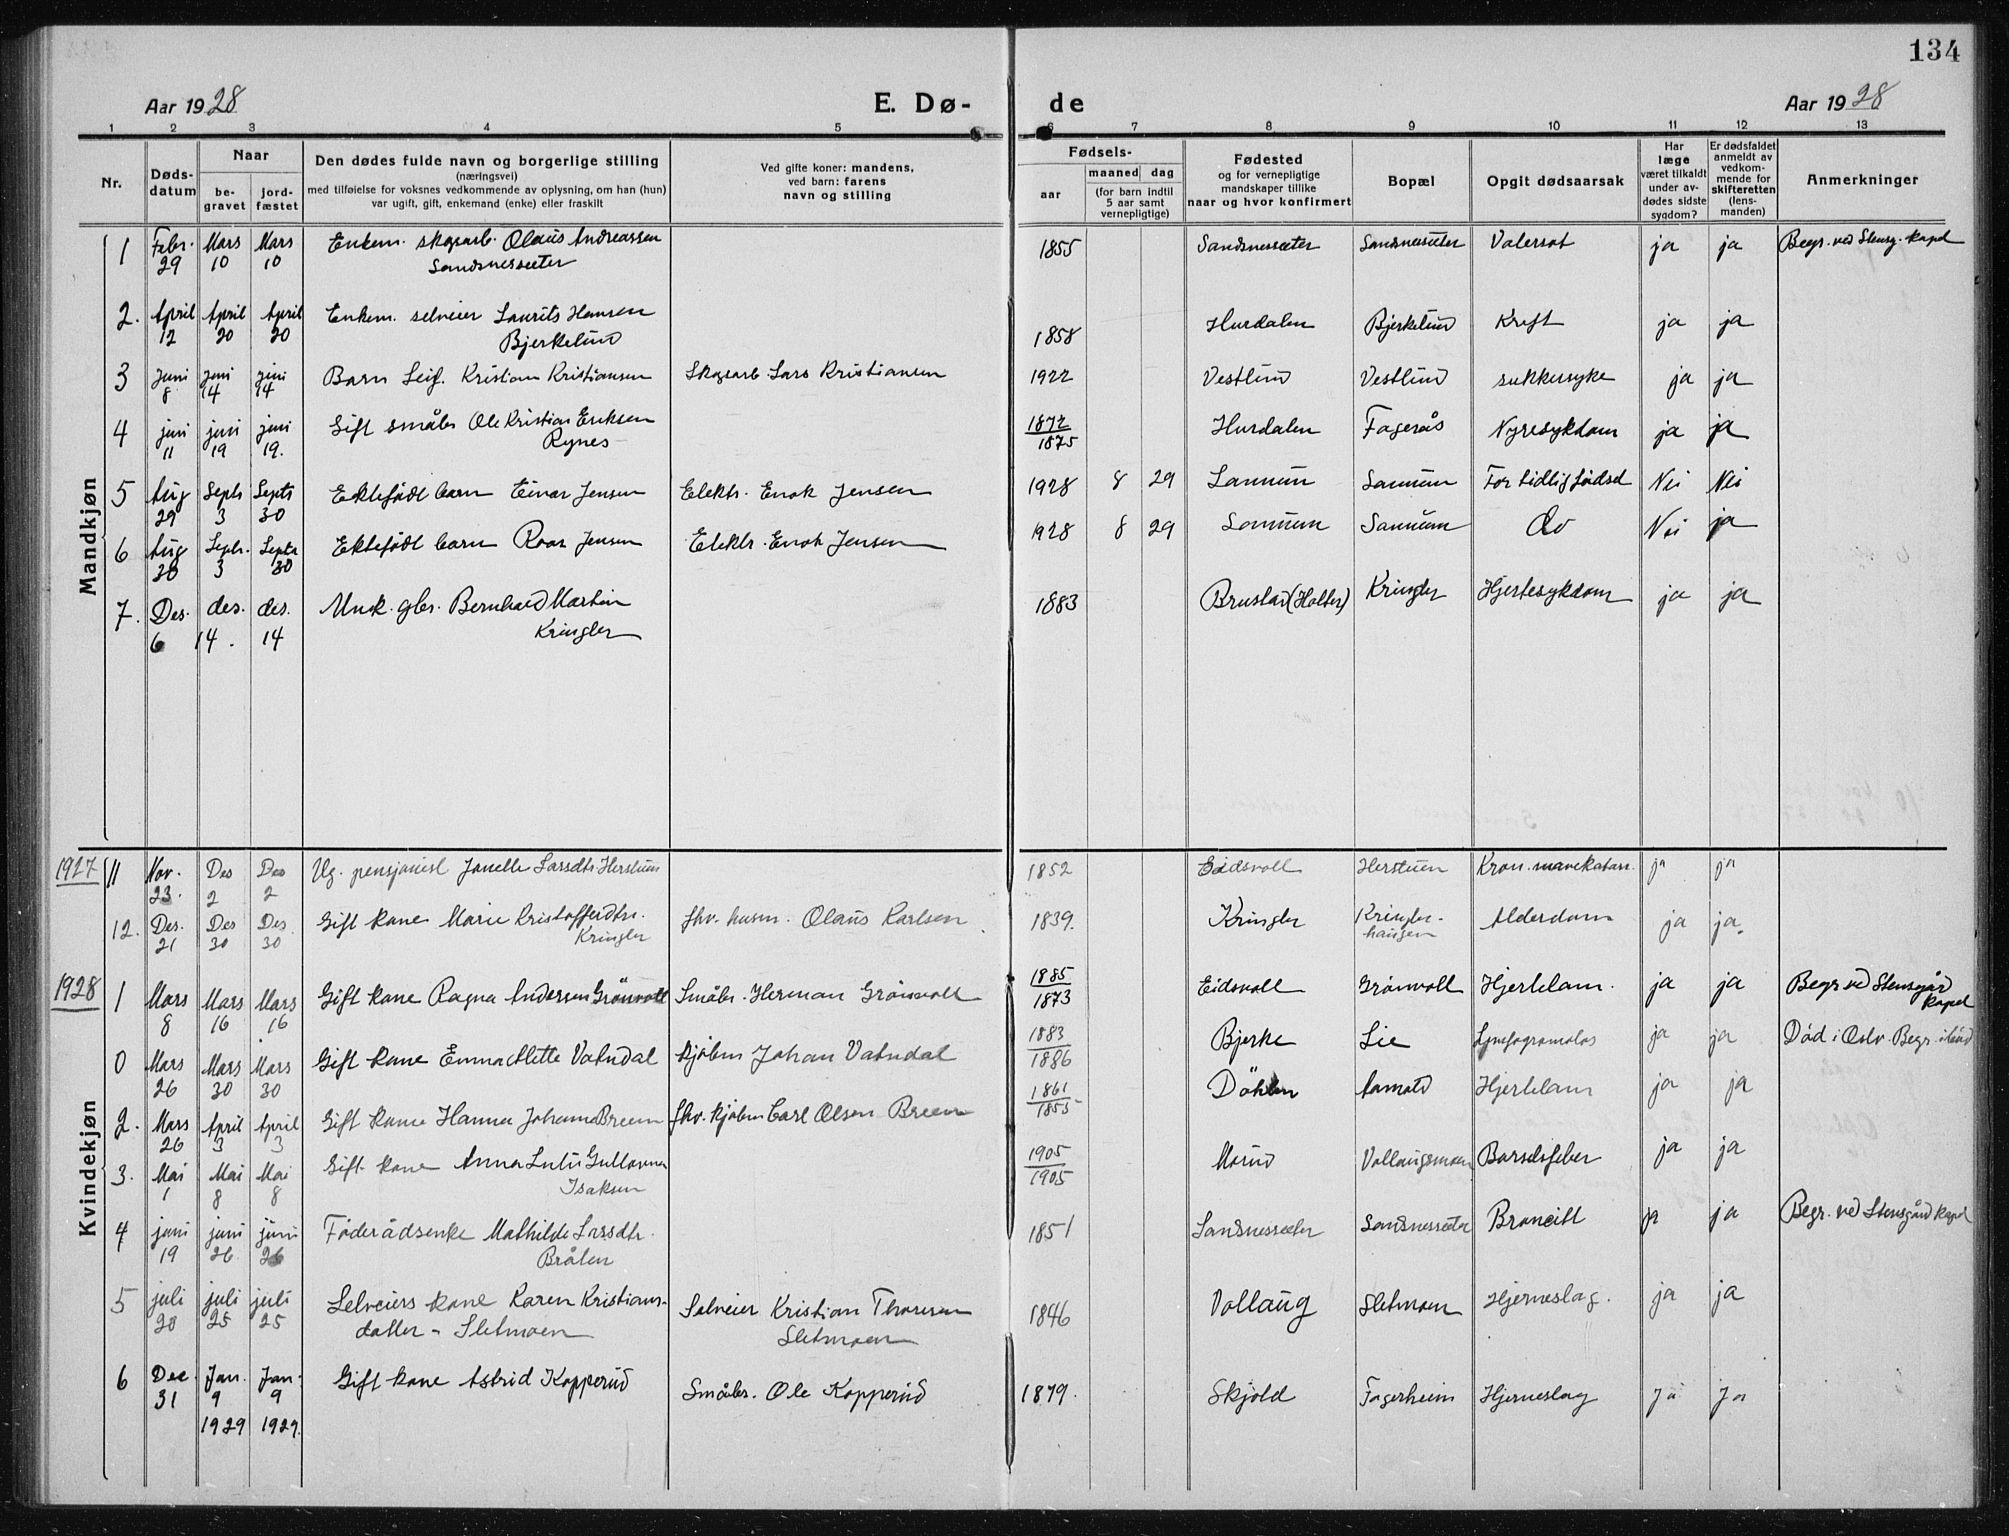 134
Aar 1928 E. Dø- de Aar 1928
1 2 3 4 5 6 7 8 9 10 11 12 13
Nr.
Døds-
datum
Naar
be-
gravet
jord-
fæstet
Den dødes fulde navn og borgerlige stilling
(næringsvei)
med tilføielse for voksnes vedkommende av oplysning, om han (hun)
var ugift, gift, enkemand (enke) eller fraskilt
Ved gifte koner: mandens,
ved barn: farens
navn og stilling
Fødsels-
aar
maaned dag
(for barn indtil
5 aar samt
vernepligtige)
Fødested
og for vernepligtige
mandskaper tillike
naar og hvor konfirmert
Bopæl
Opgit dødsaarsak
Har
læge
været tilkaldt
under av-
dødes sidste
sygdom?
Er dødsfaldet
anmeldt av
vedkom-
mende for
skifteretten
(lens-
manden)
Anmerkninger
Mandkjøn
1 Febr. Mars Mars Enkem. skogsarb. Olaus Andreassen 1855 Sandsnesseter Sandsnesseter ja ja Begr. ved Stensg. kapel
29 10 10 Sandsnesseter
2. April April April Enkem. selveier Laurits Hansen 1858 Hurdalen Bjerkelund Kreft ja ja
12 20 20 Bjerkelund
3 Juni juni juni Barn Leif Kristian Kristiansen Skogsarb. Lars Kristiansen 1922 Vestlund Vestlund sukkersyke ja ja
8 14 14
4 juni juni juni Gift småbr. Ole Kristian Eriksen 1872 Hurdalen Fagerås Nyresykdom ja ja
11 19 19. Rynes 1875
5 Aug Septr Septr Ektefødt barn Einar Jensen Elektr. Enok Jensen 1928 8 29 Sannum Sannum For tidlig fødsel Nei Nei
29 3 30
6 Aug Septr. Septr Ektefødt barn Roar Jensen Elektr. Enok Jensen 1928 8 29 Sannum Sannum Do Nei ja
30 3 30
7. Des. des. des. Unk. gbr. Bernhard Martin 1883 Brustad (Holter) Kringler Hjertesykdom ja ja
6 14. 14 Kringler
Kvindekjøn
1927 11 Nov. Des Des Ug. pensjonist Janette Larsdtr Herstuen 1852 Eidsvoll Herstuen Kron. mavekatarr. ja ja
23. 2 2
12. Des. Des Des Gift kone Marie Kristoffersdtr. fhv. husm. Olaus Karlsen 1839. Kringler Kringler- Alderdom ja ja.
21 30 30 Kringler haugen
1928 1 Mars Mars Mars Gift kone Ragna Andersen Grönvoll Småbr. Herman Grönvoll 1885 Eidsvoll Grönvoll Hjertelam. ja ja Begr ved Stensgård
8 16 16 1873 kapel
0 Mars Mars Mars Gift kone Emma Mette Vatndal kjøbm Johan Vatndal 1883 Bjerke Lie ja ja Död i Oslo. Begr.
26 30 30 1886
2. Mars April April Gift kone Hanna Johanna Breen fhv. kjøbm Carl Olsen Breen 1861 Döhlen Hjertelam ja ja
26 3 3 1855
3. Mai Mai Mai Gift kone Anna 1905 Morud Vollaugsmoen Barselfeber ja ja
1 8 8 Isaksen 1905
4 juni juni juni Föderådsenke Mathilde Larsdtr. 1851 Sandsnesseter Sandsnesseter Broncitt ja ja Begr. ved Stensgård kapel
19 26 26 Bråten
5 juli juli juli Selveiers kone Karen Kristians- Selveier Kristian Thoresen 1846 Vollaug Sletmoen Hjerneslag. ja ja
20 25 25 datter - Sletmoen Sletmoen
6 Dec. Jan. Jan. Gift kone Astrid Kopperud Småbr. Ole Kopperud 1879. Skjold Fagerheim Hjerneslag Ja Ja
31 9 9
1929 1929.